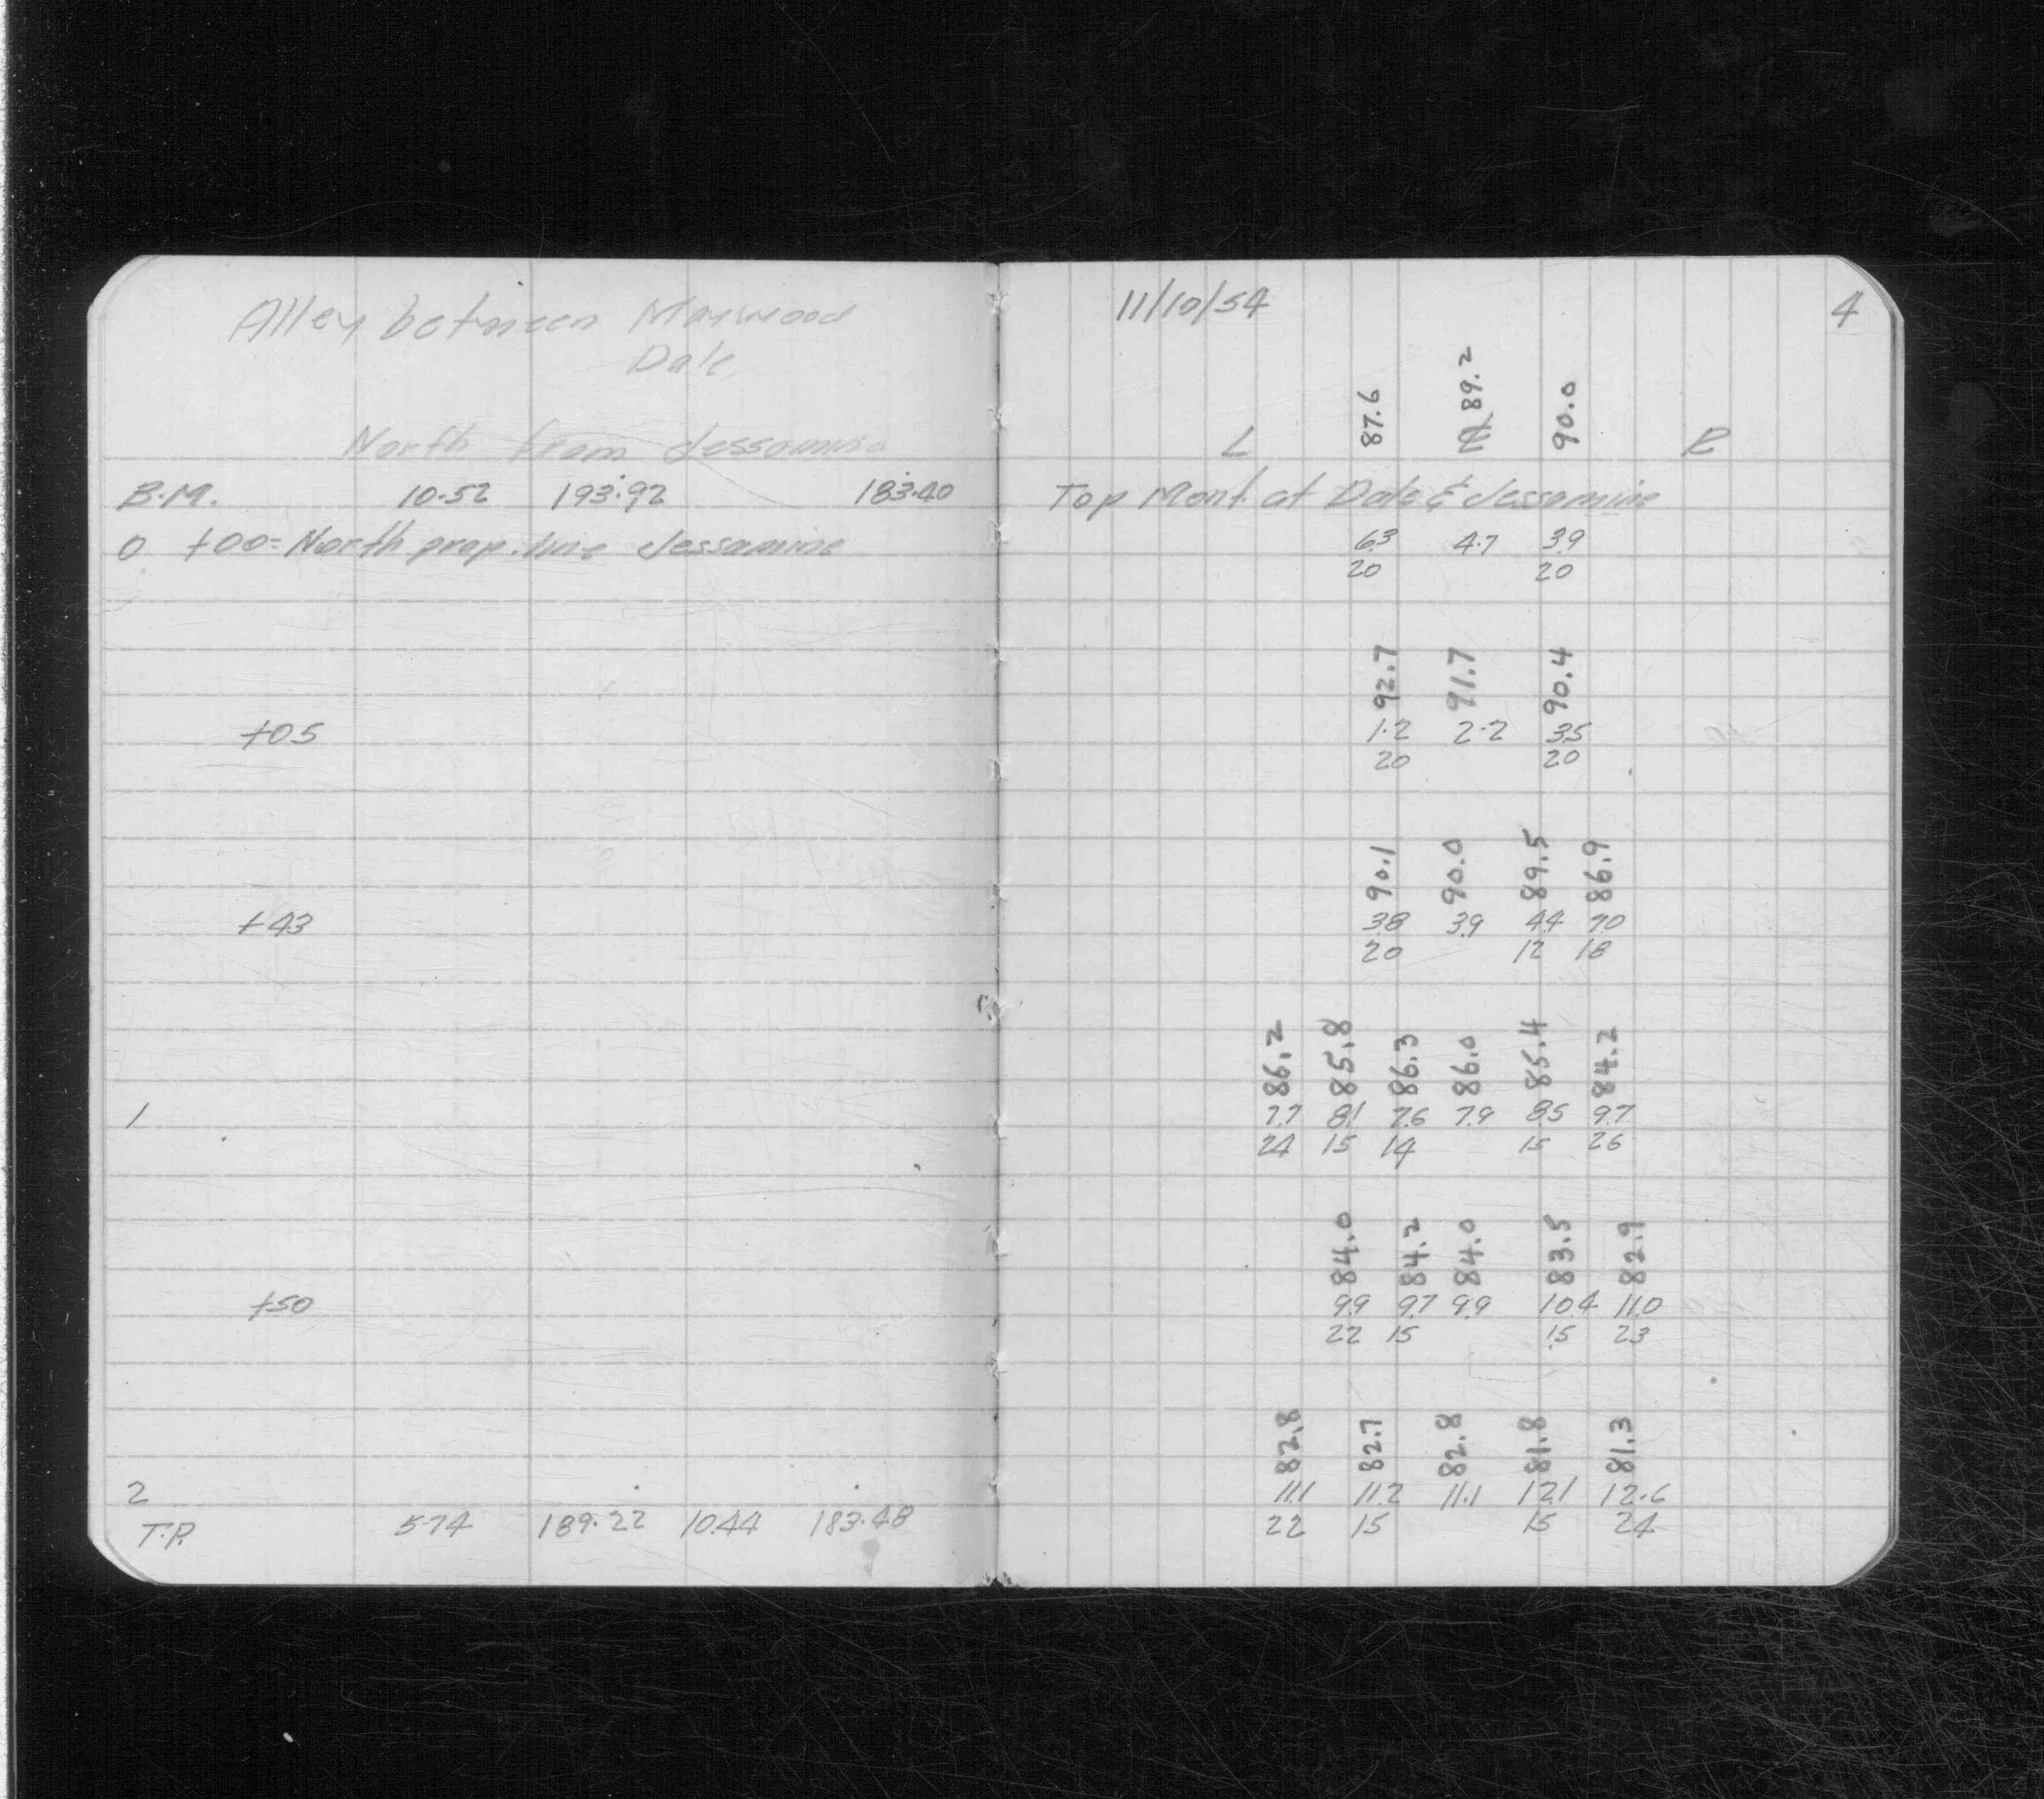 Alley between Maywood
Dale
North from Jessamine
B.M. 10.52 193.92 183.40
0 +00= North prop. line Jessamine
+05
+43
1
+50
2
T.P. 5.74 189.22 10.44 183.48
11/10/54 4
87.6 89.2 90.0
L ℄ R
Top Mont. at Dale & Jessamine
6.3 4.7 3.9
20 20
92.7 91.7 90.4
1.2 2.2 3.5
20 20
90.1 90.0 89.5 86.9
3.8 3.9 4.4 7.0
20 12 18
86.2 85.8 86.3 86.0 85.4 84.2
7.7 8.1 7.6 7.9 8.5 9.7
24 15 14 15 26
84.0 84.2 84.0 83.5 82.9
9.9 9.7 9.9 10.4 11.0
22 15 15 23
82.8 82.7 82.8 81.8 81.3
11.1 11.2 11.1 12.1 12.6
22 15 15 24